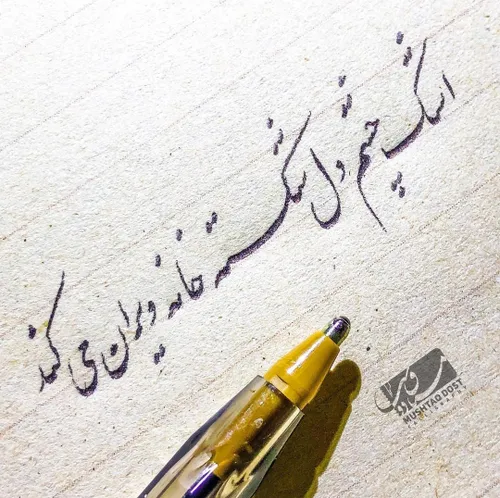 اشک چشم دل شکسته خانه ویران می کند
MUSHTAQ DOST